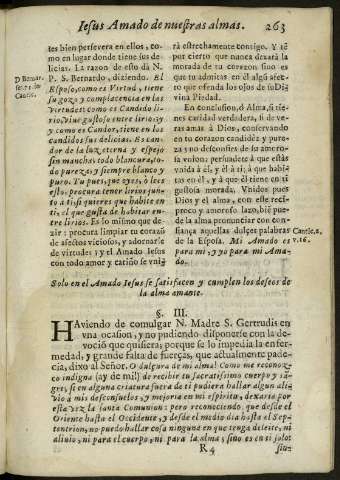 Iesus Amado de nuestras almas. 263
les bien persevera en ellos, co-
mo en lugar donde tiene sus de-
licias. La razon de esto dà N.
P. S. Bernardo, diziendo. El
Esposo, como es Virtud, tiene
su gozo y complacencia en las
virtudes: como es Candido li-
rio, vive gustoso entre lirios: y
y como es Candor, tiene en los
candidos sus delicias. Es can-
dor de la luz eterna y espejo
sin mancha: todo blancura, to-
do pureza; y siempre blanco y
puro. Tu pues, que oyes, ò lees
esto: procura tener lirios junto
a ti, si quieres que habite en
ti, el que gusta de habitar en-
tre lirios. Es lo mismo que de-
zir: procura limpiar tu coraçõ
de afectos viciosos, y adornarse
de virtudes; y el Amado Iesus
con todo amor y cariño se vni-
D. Bernar.
Cantic.
rà estrechamente consigo. Y tẽ
por cierto que nunca dexarà la
morada de tu coraçon sino es
que tu admitas en èl algũ afec-
to que ofenda los ojos de su Di-
vina Piedad.
En conclusion, ò Alma, si tie-
nes caridad verdadera, si de ve-
ras amas à Dios, conservando
en tu coraçon candidèz y pure-
za y no desconfies de su amoro-
sa vnion: persuadete à que estàs
vnida à èl, y èl à ti; à que habi-
tas en èl, y à que èl tiene en ti
gustosa morada. Vnidos pues
Dios y el alma, con este reci-
proco y amoroso lazo, biẽ pue-
de la alma pronunciar con con-
fiança aquellas dulces palabras
de la Esposa. Mi Amado es
para mi, y yo para mi Ama-
do.
Cantic. 2.
v. 16.
Solo en el Amado Iesus se satisfacen y cumplen los deseos de
la alma amante.
§. III.
Haviendo de comulgar N. Madre S. Gertrudis en
vna ocasion, y no pudiendo disponerse con la de-
vociõ que quisiera; porque se lo impedia la enfer-
medad, y grande falta de fuerças, que actualmente pade-
cia, dixo al Señor. O dulçura de mi alma! Como me reconoz-
co indigna (ay de mi!) de recibir tu Sacratissimo cuerpo y sã-
gre, si en alguna criatura fuera de ti pudiera hallar algun ali-
vio a mis desconsuelos, y mejoria en mi espiritu, dexaria por
esta vez la santa Comunion: pero reconociendo que desde el
Oriente hasta el Occidente, y desde el medio dia hasta el Sep-
tentrion, no puedo hallar cosa ninguna en que tenga deleite, ni
alivio, ni para el cuerpo, ni para la alma; sino es en ti solo:
R 4 sin-